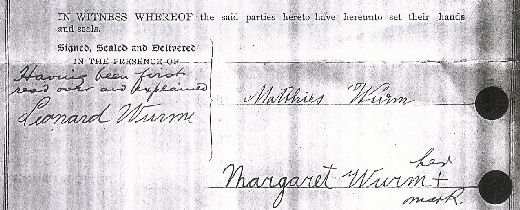 IN WITNESS WHEREOF the said parties hereto have hereunto set their hands
and seals.
Signed, Sealed and Delivered
IN THE PRESENCE OF
Having been first
read over and explained
Leonard Wurm
Matthies Wurm
her
Margaret Wurm +
mark.